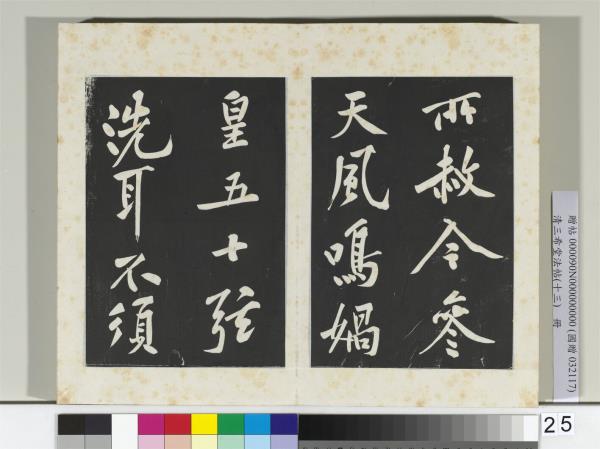 所赦今參
天風鳴媧
皇五十弦
洗耳不須
贈帖 000090N000000000 (國贈 032117)
清三希堂法帖(十三) 冊
25